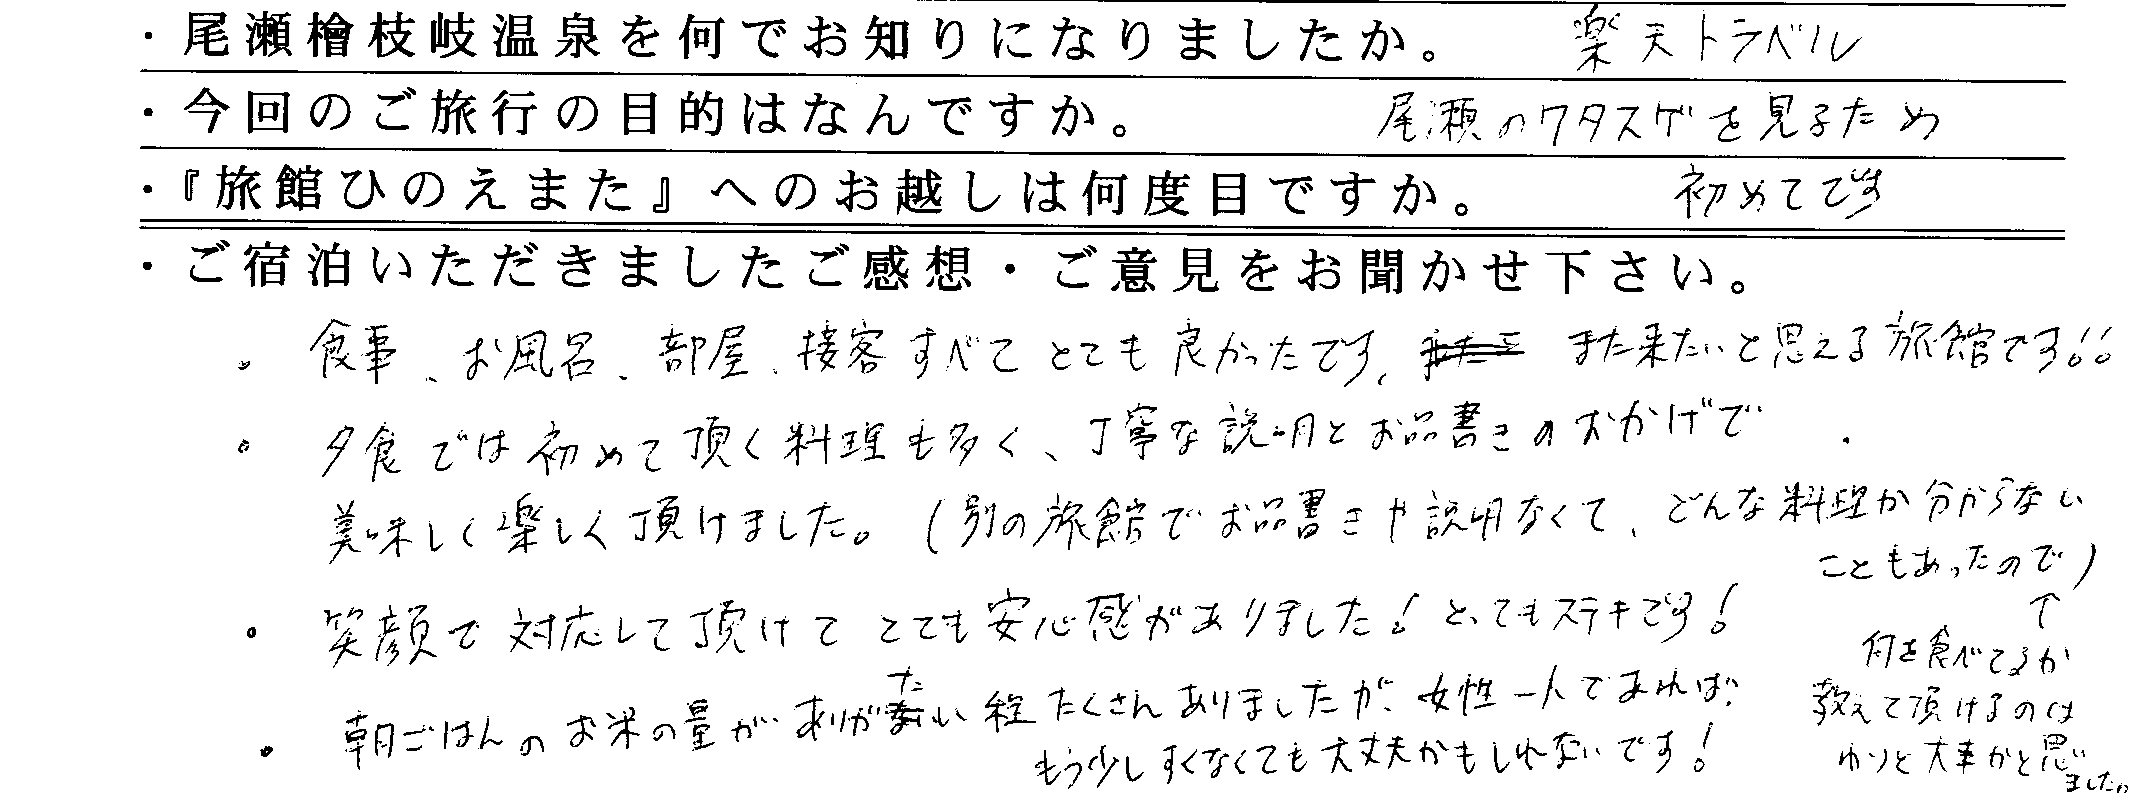 ・尾瀬檜枝岐温泉を何でお知りになりましたか。 楽天トラベル
・今回のご旅行の目的はなんですか。 尾瀬のワタスゲを見るため
・『旅館ひのえまた』へのお越しは何度目ですか。 初めてです
・ご宿泊いただきましたご感想・ご意見をお聞かせ下さい。
。食事、お風呂、部屋、接客すべてとても良かったです、また来たいと思える旅館です!!
。夕食では初めて頂く料理も多く、丁寧な説明とお品書きのおかげで
美味しく楽しく頂けました。(別の旅館でお品書きや説明なくて、どんな料理か分からない
こともあったので)
↑
何を食べてるか
教えて頂けるのは
わりと大事かと思い
ました。
。笑顔で対応して頂けてとても安心感がありました!とってもステキです!
。朝ごはんのお米の量がありがたい程たくさんありましたが、女性一人であれば、
もう少しすくなくても大丈夫かもしれないです!